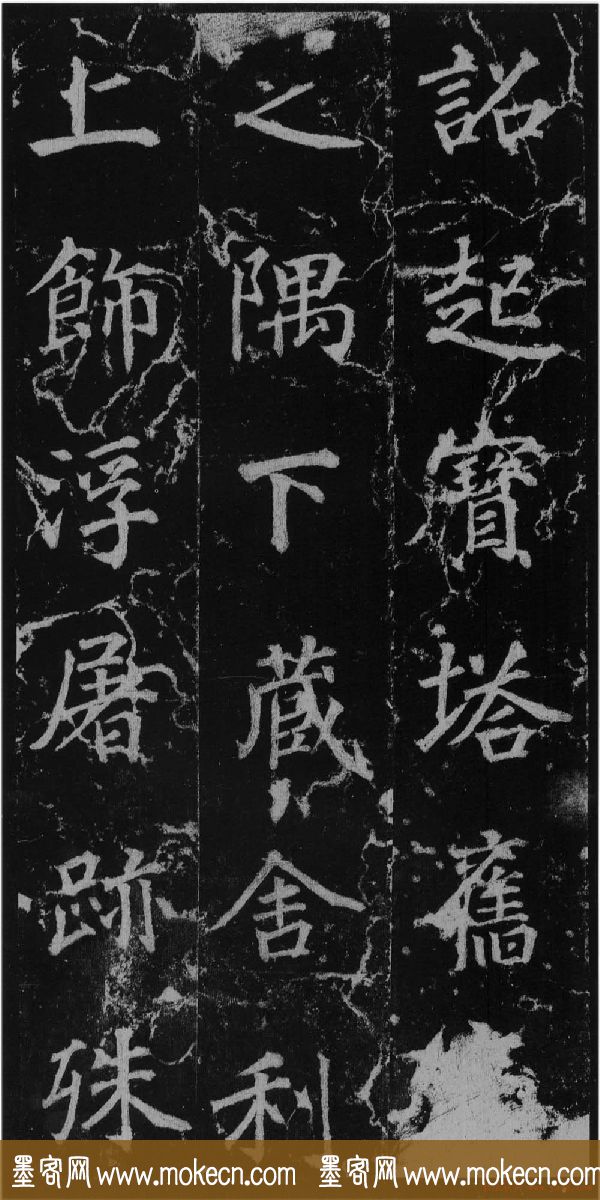 詔起寶塔舊
之隅下蔵舍利
上飾浮屠跡殊
墨客网 www.mokecn.com 墨客网 www.mokecn.com